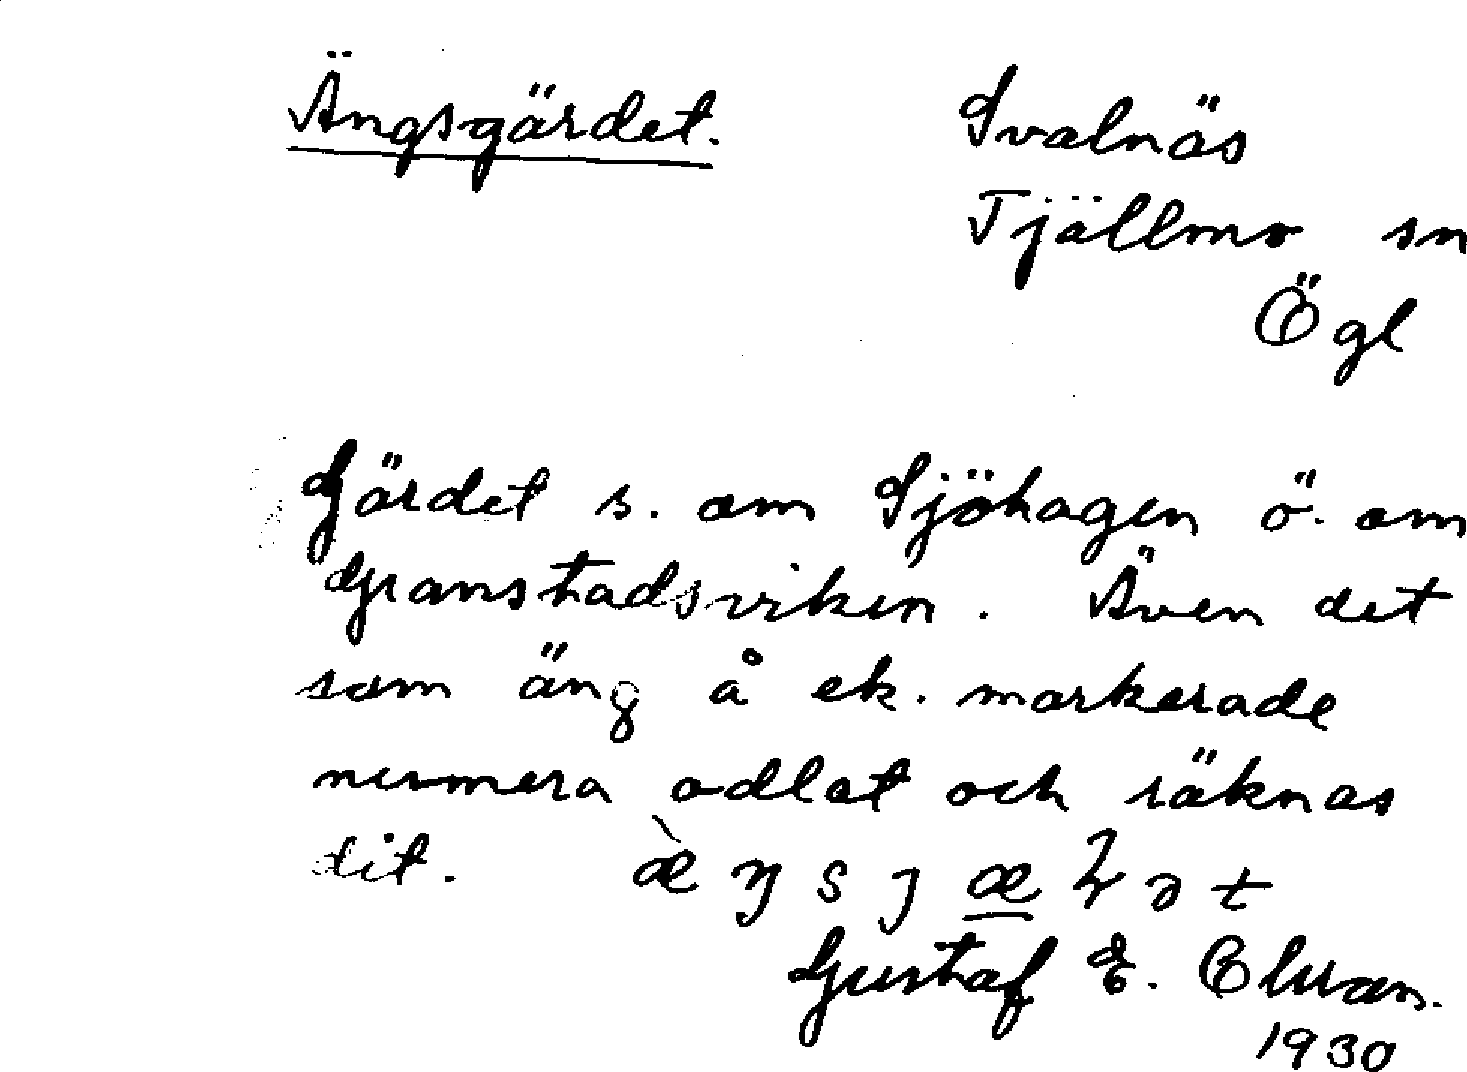 Ängsgärdet. Svalnäs
Tjällmo sn
Ögl
Gärdet s. om Sjöhagen ö. om
Granstadsviken. Även det
som äng å ek. markerade
nurmera odlat och räknas
dit.
Gustaf E.
1930